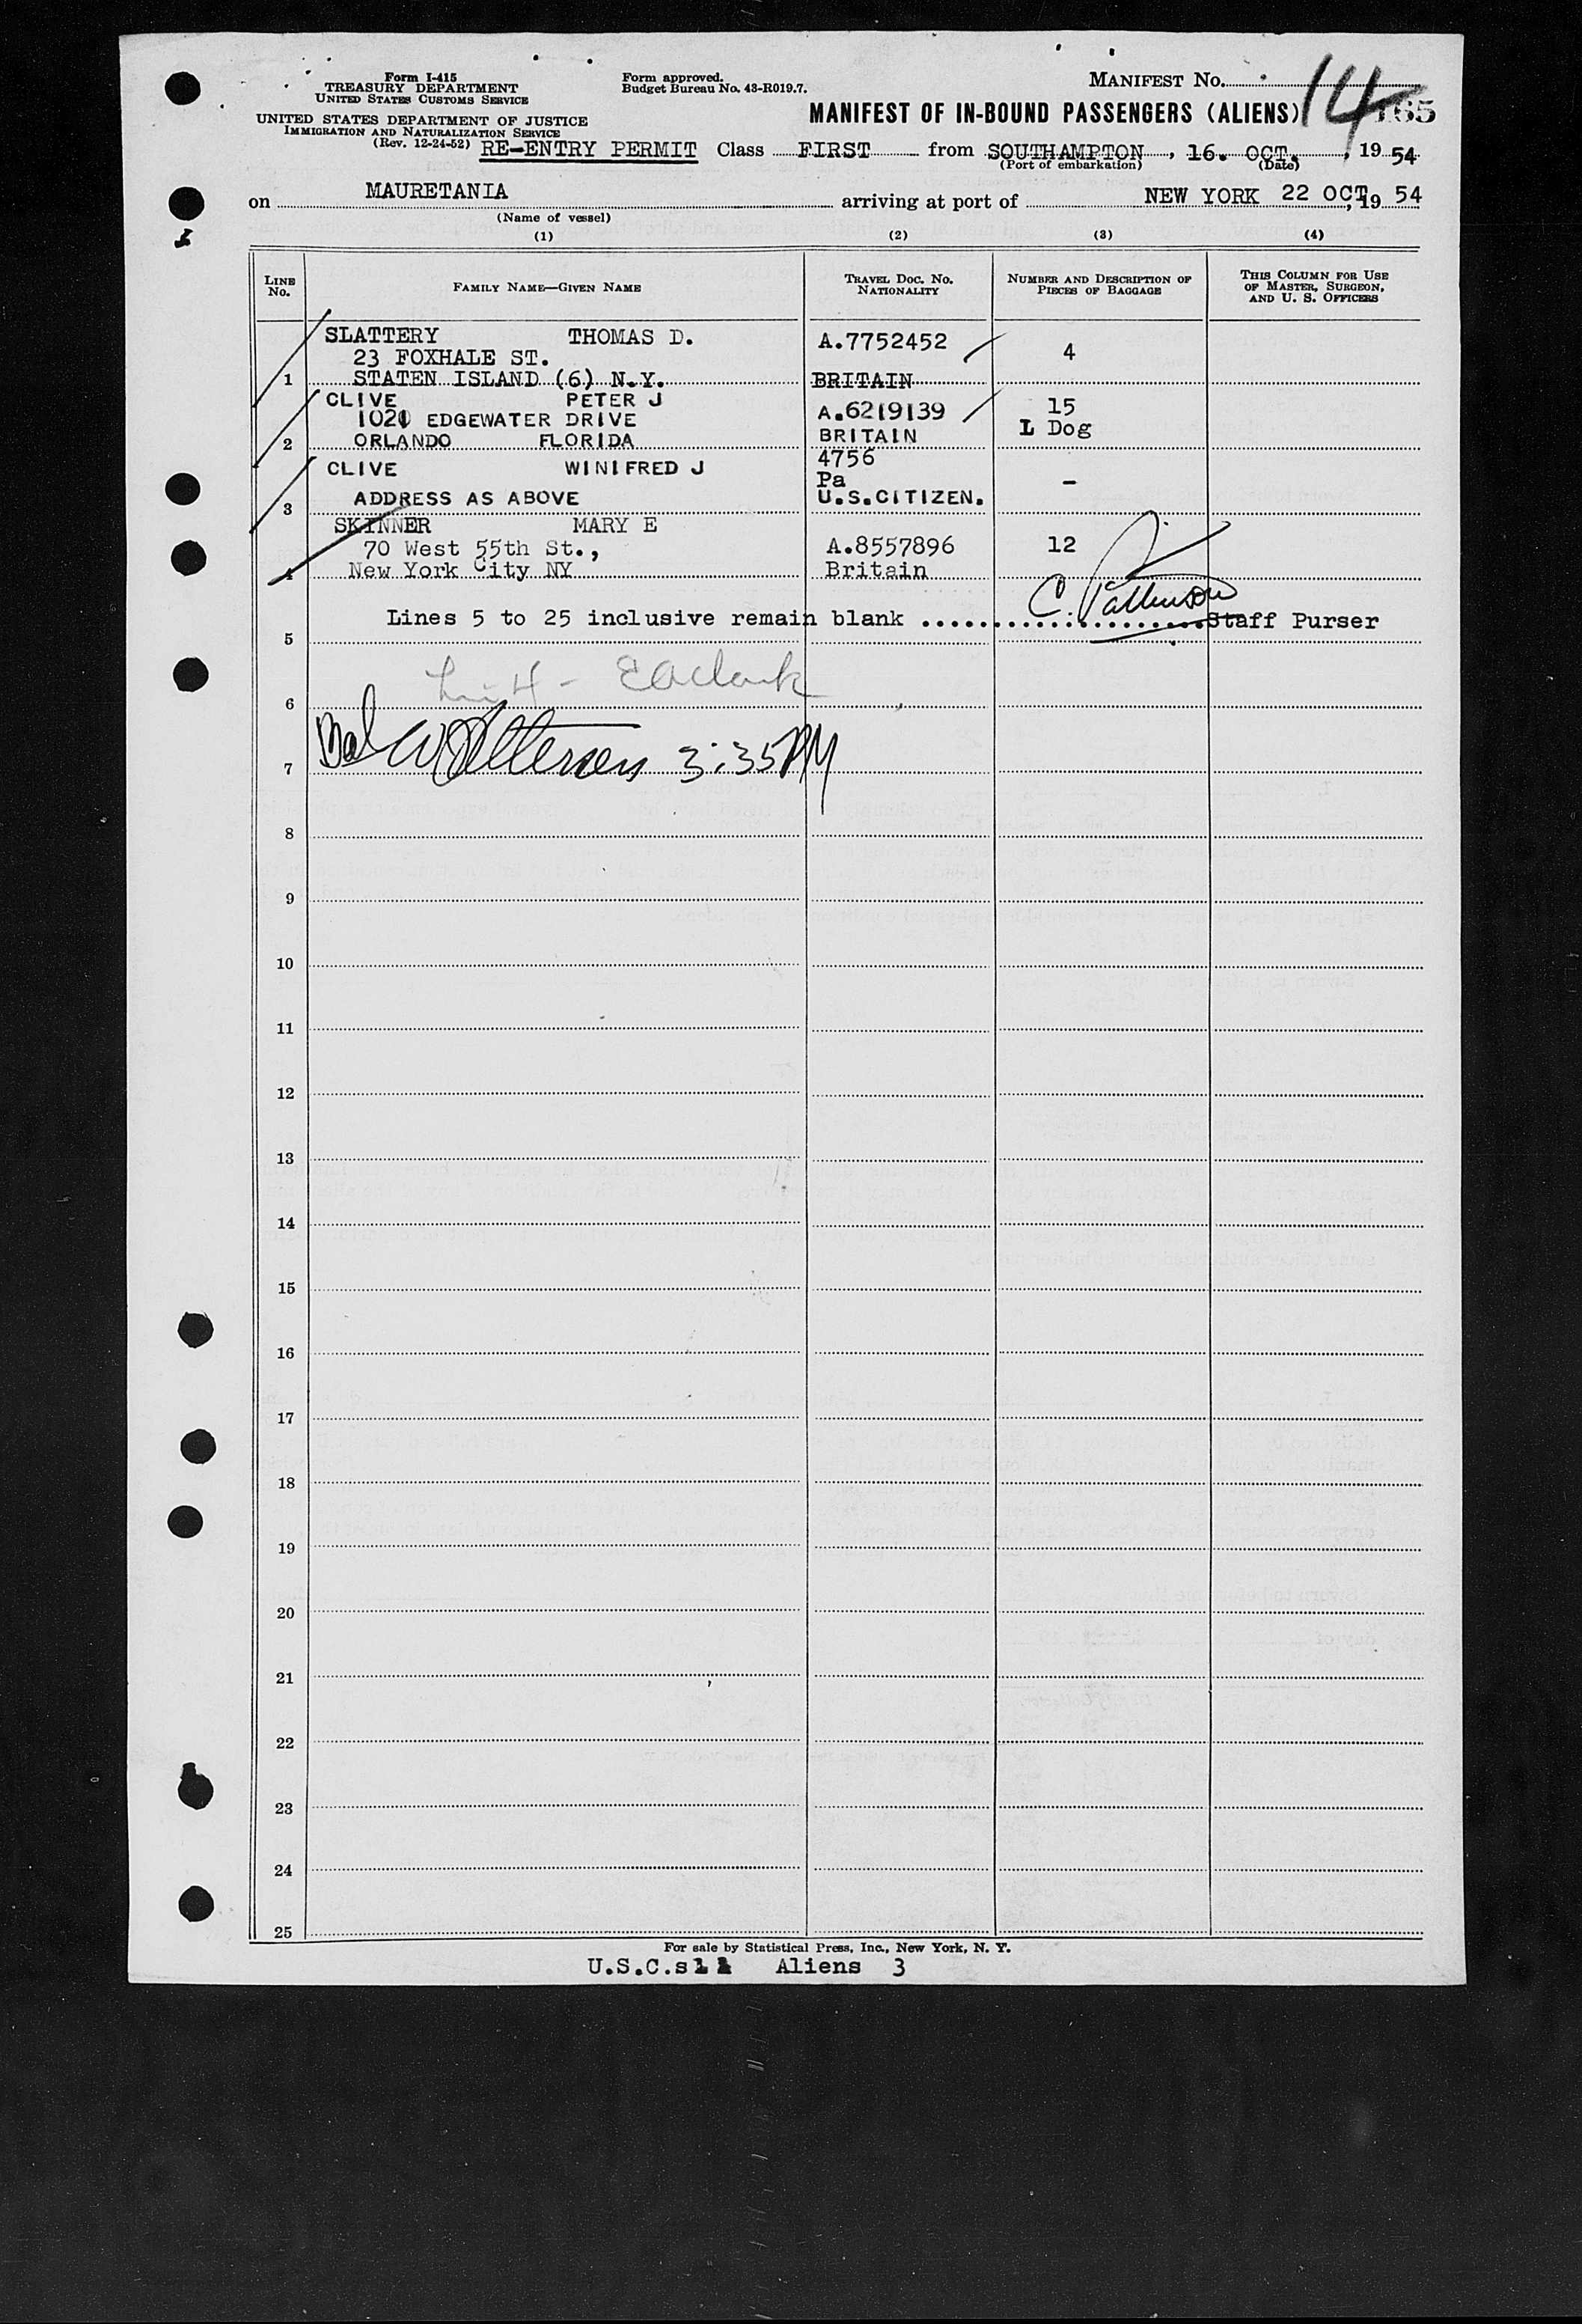 Form I-415
TREASURY DEPARTMENT
UNITED STATES CUSTOMS SERVICE
UNITED STATES DEPARTMENT OF JUSTICE
IMMIGRATION AND NATURALIZATION SERVICE
(Rev. 12-24-52)
Form approved.
Budget Bureau No. 43-R019.7.
MANIFEST NO. 14
MANIFEST OF IN-BOUND PASSENGERS (ALIENS)
RE-ENTRY PERMIT Class FIRST from SOUTHAMPTON, 16. OCT., 19 54
(Port of embarkation) (Date)
on MAURETANIA arriving at port of NEW YORK 22 OCT, 19 54
(Name of vessel)
(1) (2) (3) (4)
LINE NO. FAMILY NAME—GIVEN NAME TRAVEL DOC. NO. NATIONALITY NUMBER AND DESCRIPTION OF PIECES OF BAGGAGE THIS COLUMN FOR USE OF MASTER, SURGEON, AND U. S. OFFICERS
SLATTERY THOMAS D. A.7752452 4
23 FOXHALE ST.
1 STATEN ISLAND (6) N.Y. BRITAIN
CLIVE PETER J A.6219139 15
1021 EDGEWATER DRIVE L Dog
2 ORLANDO FLORIDA BRITAIN
CLIVE WINIFRED J 4756
Pa -
3 ADDRESS AS ABOVE U.S.CITIZEN.
SKINNER MARY E
70 West 55th St., A.8557896 12
4 New York City NY Britain
Lines 5 to 25 inclusive remain blank .................... C. Pattinson Staff Purser
5
6 Lin 4 - EAClark
7 Bal W Patterson 3:35 PM
8
9
10
11
12
13
14
15
16
17
18
19
20
21
22
23
24
25
For sale by Statistical Press, Inc., New York, N. Y.
U.S.C.s 1 Aliens 3